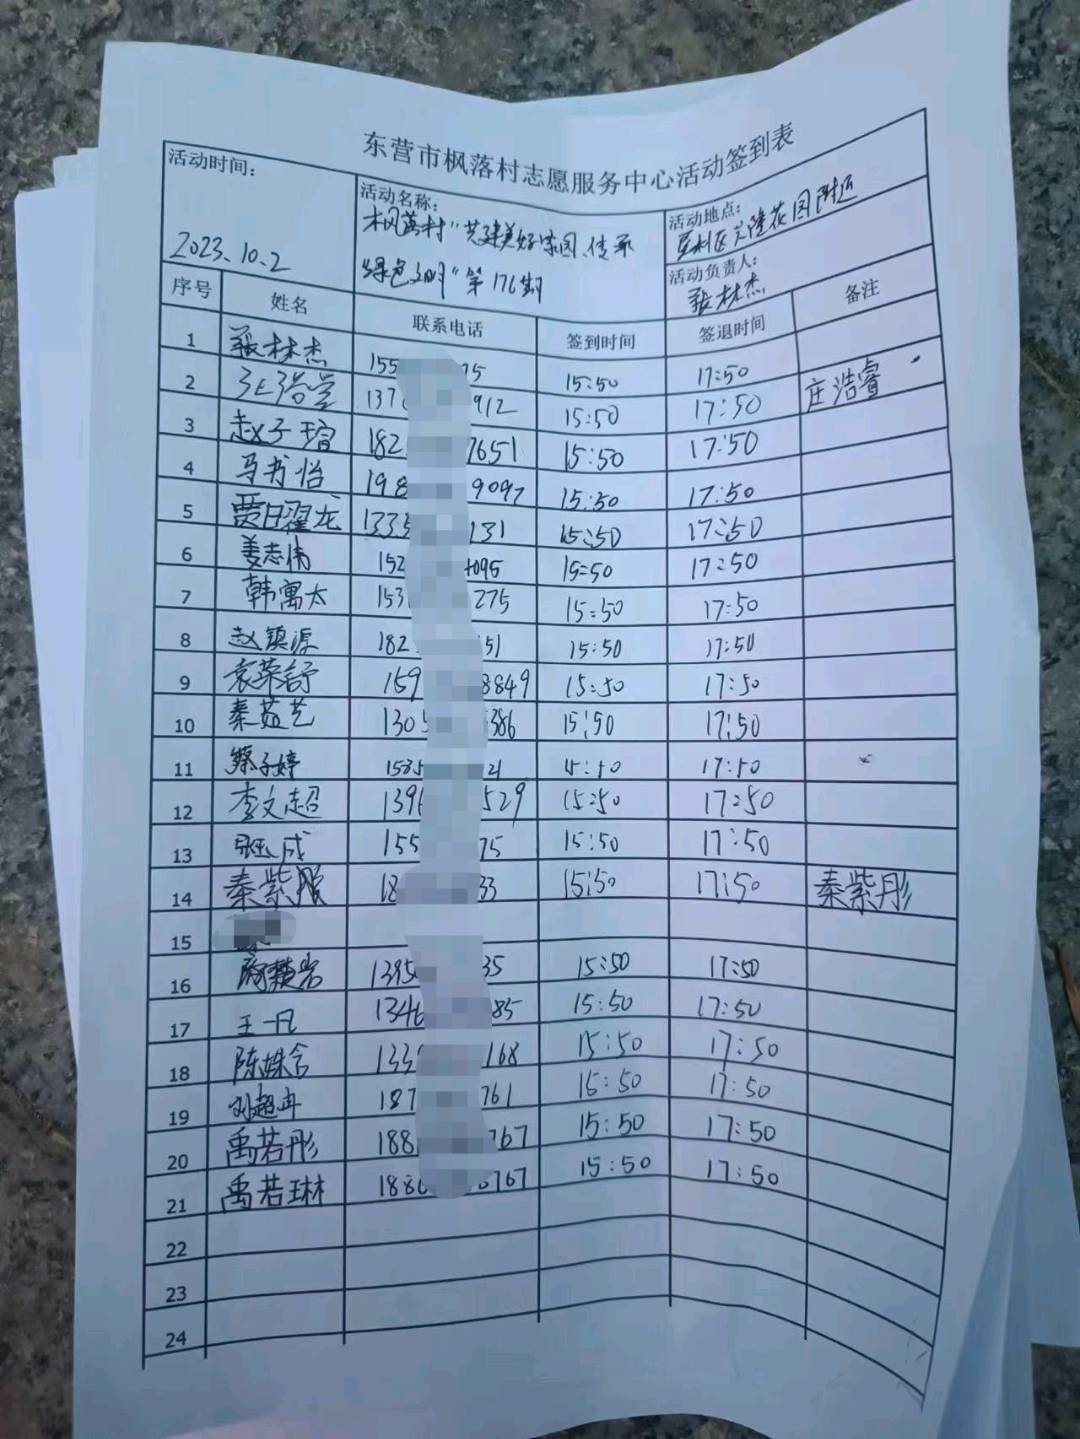 东营市枫落村志愿服务中心活动签到表
活动时间：
2023.10.2
活动名称：
枫落村"共建美好家园、传承
绿色文明"第176期
活动地点：
垦利区兴隆花园附近
活动负责人：
张林杰
序号 姓名 联系电话 签到时间 签退时间 备注
1 张林杰 155 75 15:50 17:50
2 137 912 15:50 17:50 庄浩睿
3 赵子瑄 182 7651 15:50 17:50
4 马书怡 198 9097 15:50 17:50
5 贾日翟龙 1335 131 15:50 17:50
6 姜志伟 152 4095 15:50 17:50
7 韩寓太 153 275 15:50 17:50
8 赵镇源 182 51 15:50 17:50
9 袁荣舒 159 8849 15:50 17:50
10 秦菇艺 1305 386 15:50 17:50
11 蔡子婷 1535 21 15:50 17:50
12 李文超 139 529 15:50 17:50
13 成 155 75 15:50 17:50
14 秦紫彤 18 33 15:50 17:50 秦紫彤
15
16 1395 35 15:50 17:50
17 王一凡 1346 85 15:50 17:50
18 陈姝含 133 168 15:50 17:50
19 刘超冉 187 761 15:50 17:50
20 禹若彤 188 767 15:50 17:50
21 禹若琳 188 767 15:50 17:50
22
23
24